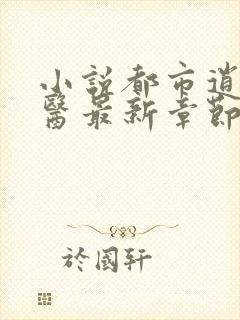 小說都市逍
醫最新章節
於國軒